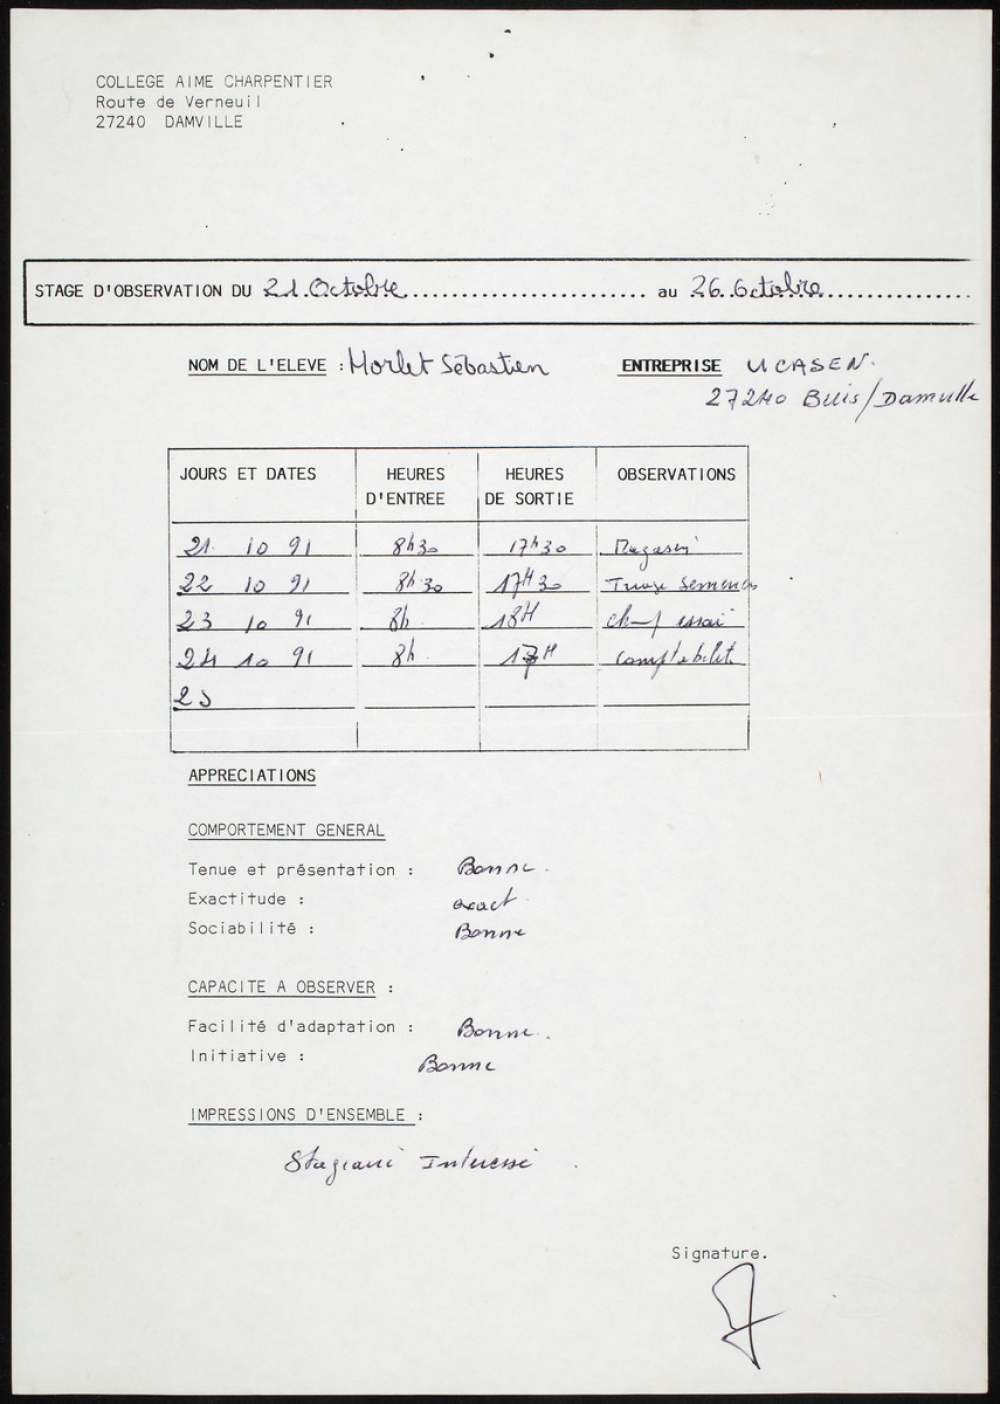 COLLEGE AIME CHARPENTIER
Route de Verneuil
27240 DAMVILLE
STAGE D'OBSERVATION DU 21 Octobre au 26 Octobre
NOM DE L'ELEVE : Morlet Sébastien ENTREPRISE UCASEN.
27240 Buis/Damville
JOURS ET DATES HEURES D'ENTREE HEURES DE SORTIE OBSERVATIONS
21 10 91 8h30 17h30 Magasin
22 10 91 8h30 17H30 Triage Semences
23 10 91 8h 18H essai
24 10 91 8h 17H comptabilité
25
APPRECIATIONS
COMPORTEMENT GENERAL
Tenue et présentation : Bonne.
Exactitude : exact
Sociabilité : Bonne
CAPACITE A OBSERVER :
Facilité d'adaptation : Bonne.
Initiative : Bonne
IMPRESSIONS D'ENSEMBLE :
Stagiaire Interessé
Signature.